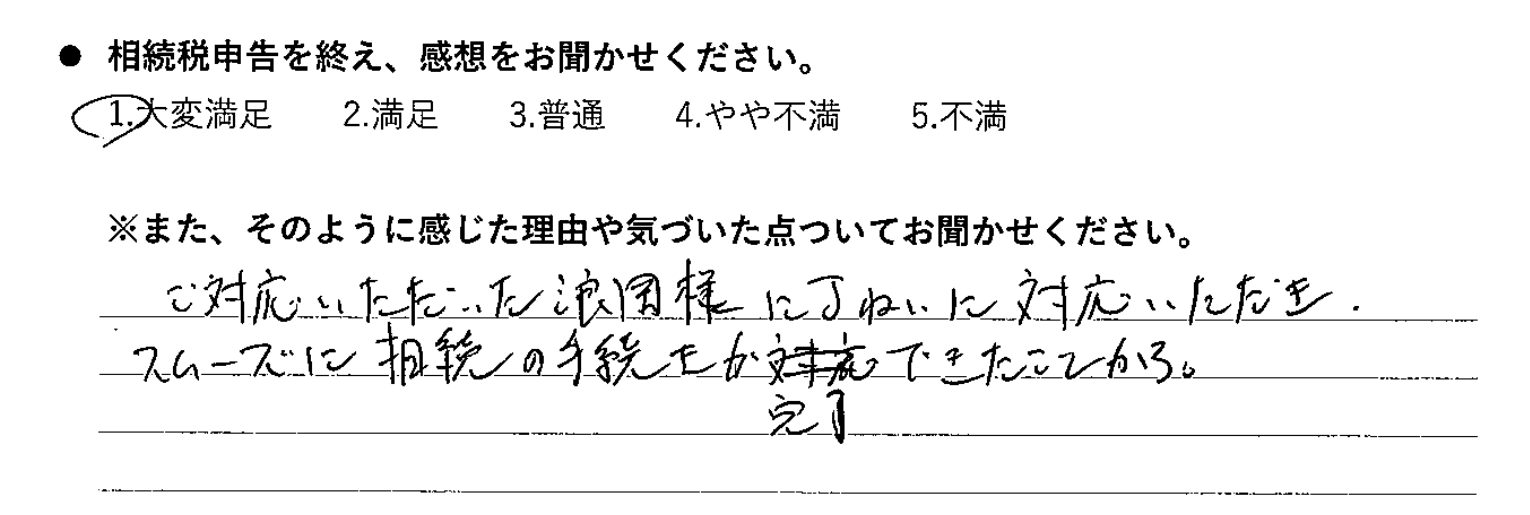 ● 相続税申告を終え、感想をお聞かせください。
1.大変満足 2.満足 3.普通 4.やや不満 5.不満
※また、そのように感じた理由や気づいた点ついてお聞かせください。
ご対応いただいた浪岡様に丁ねいに対応いただき、
スムーズに相続の手続きが対応できたことから。
完了